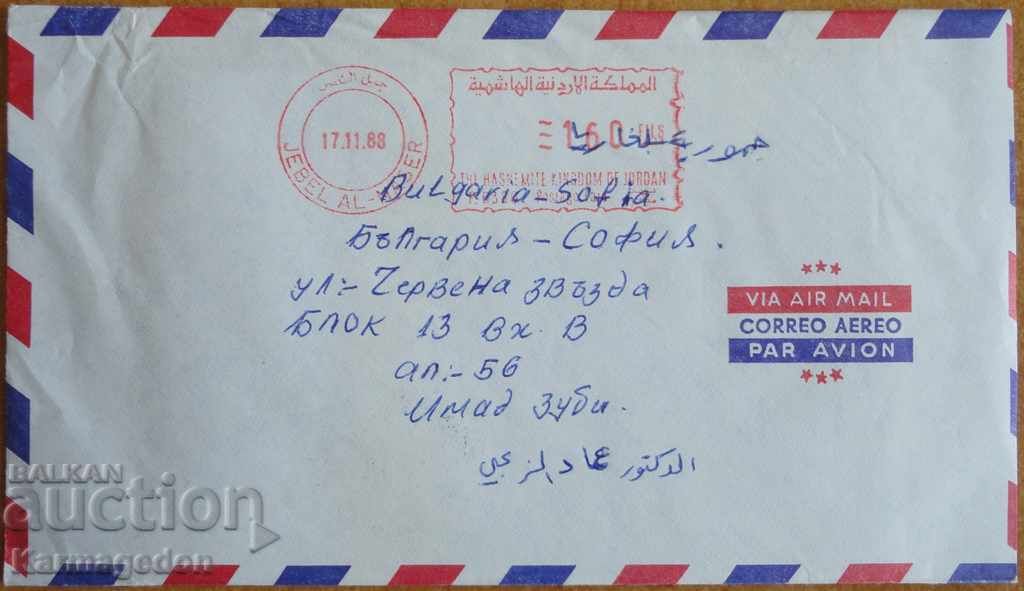 جبل القصر
17.11.88
JEBEL AL-KASER
المملكة الاردنية الهاشمية
160 FILS
THE HASHEMITE KINGDOM OF JORDAN
جمهورية بلغاريا
Bulgaria-Sofia.
България-София.
ул:-Червена звъзда
Блок 13 Вх. В
ап:-56
Имад Зуби.
الدكتور عماد الزعبي
VIA AIR MAIL
CORREO AEREO
PAR AVION
BALKAN
auction
Karmagedon